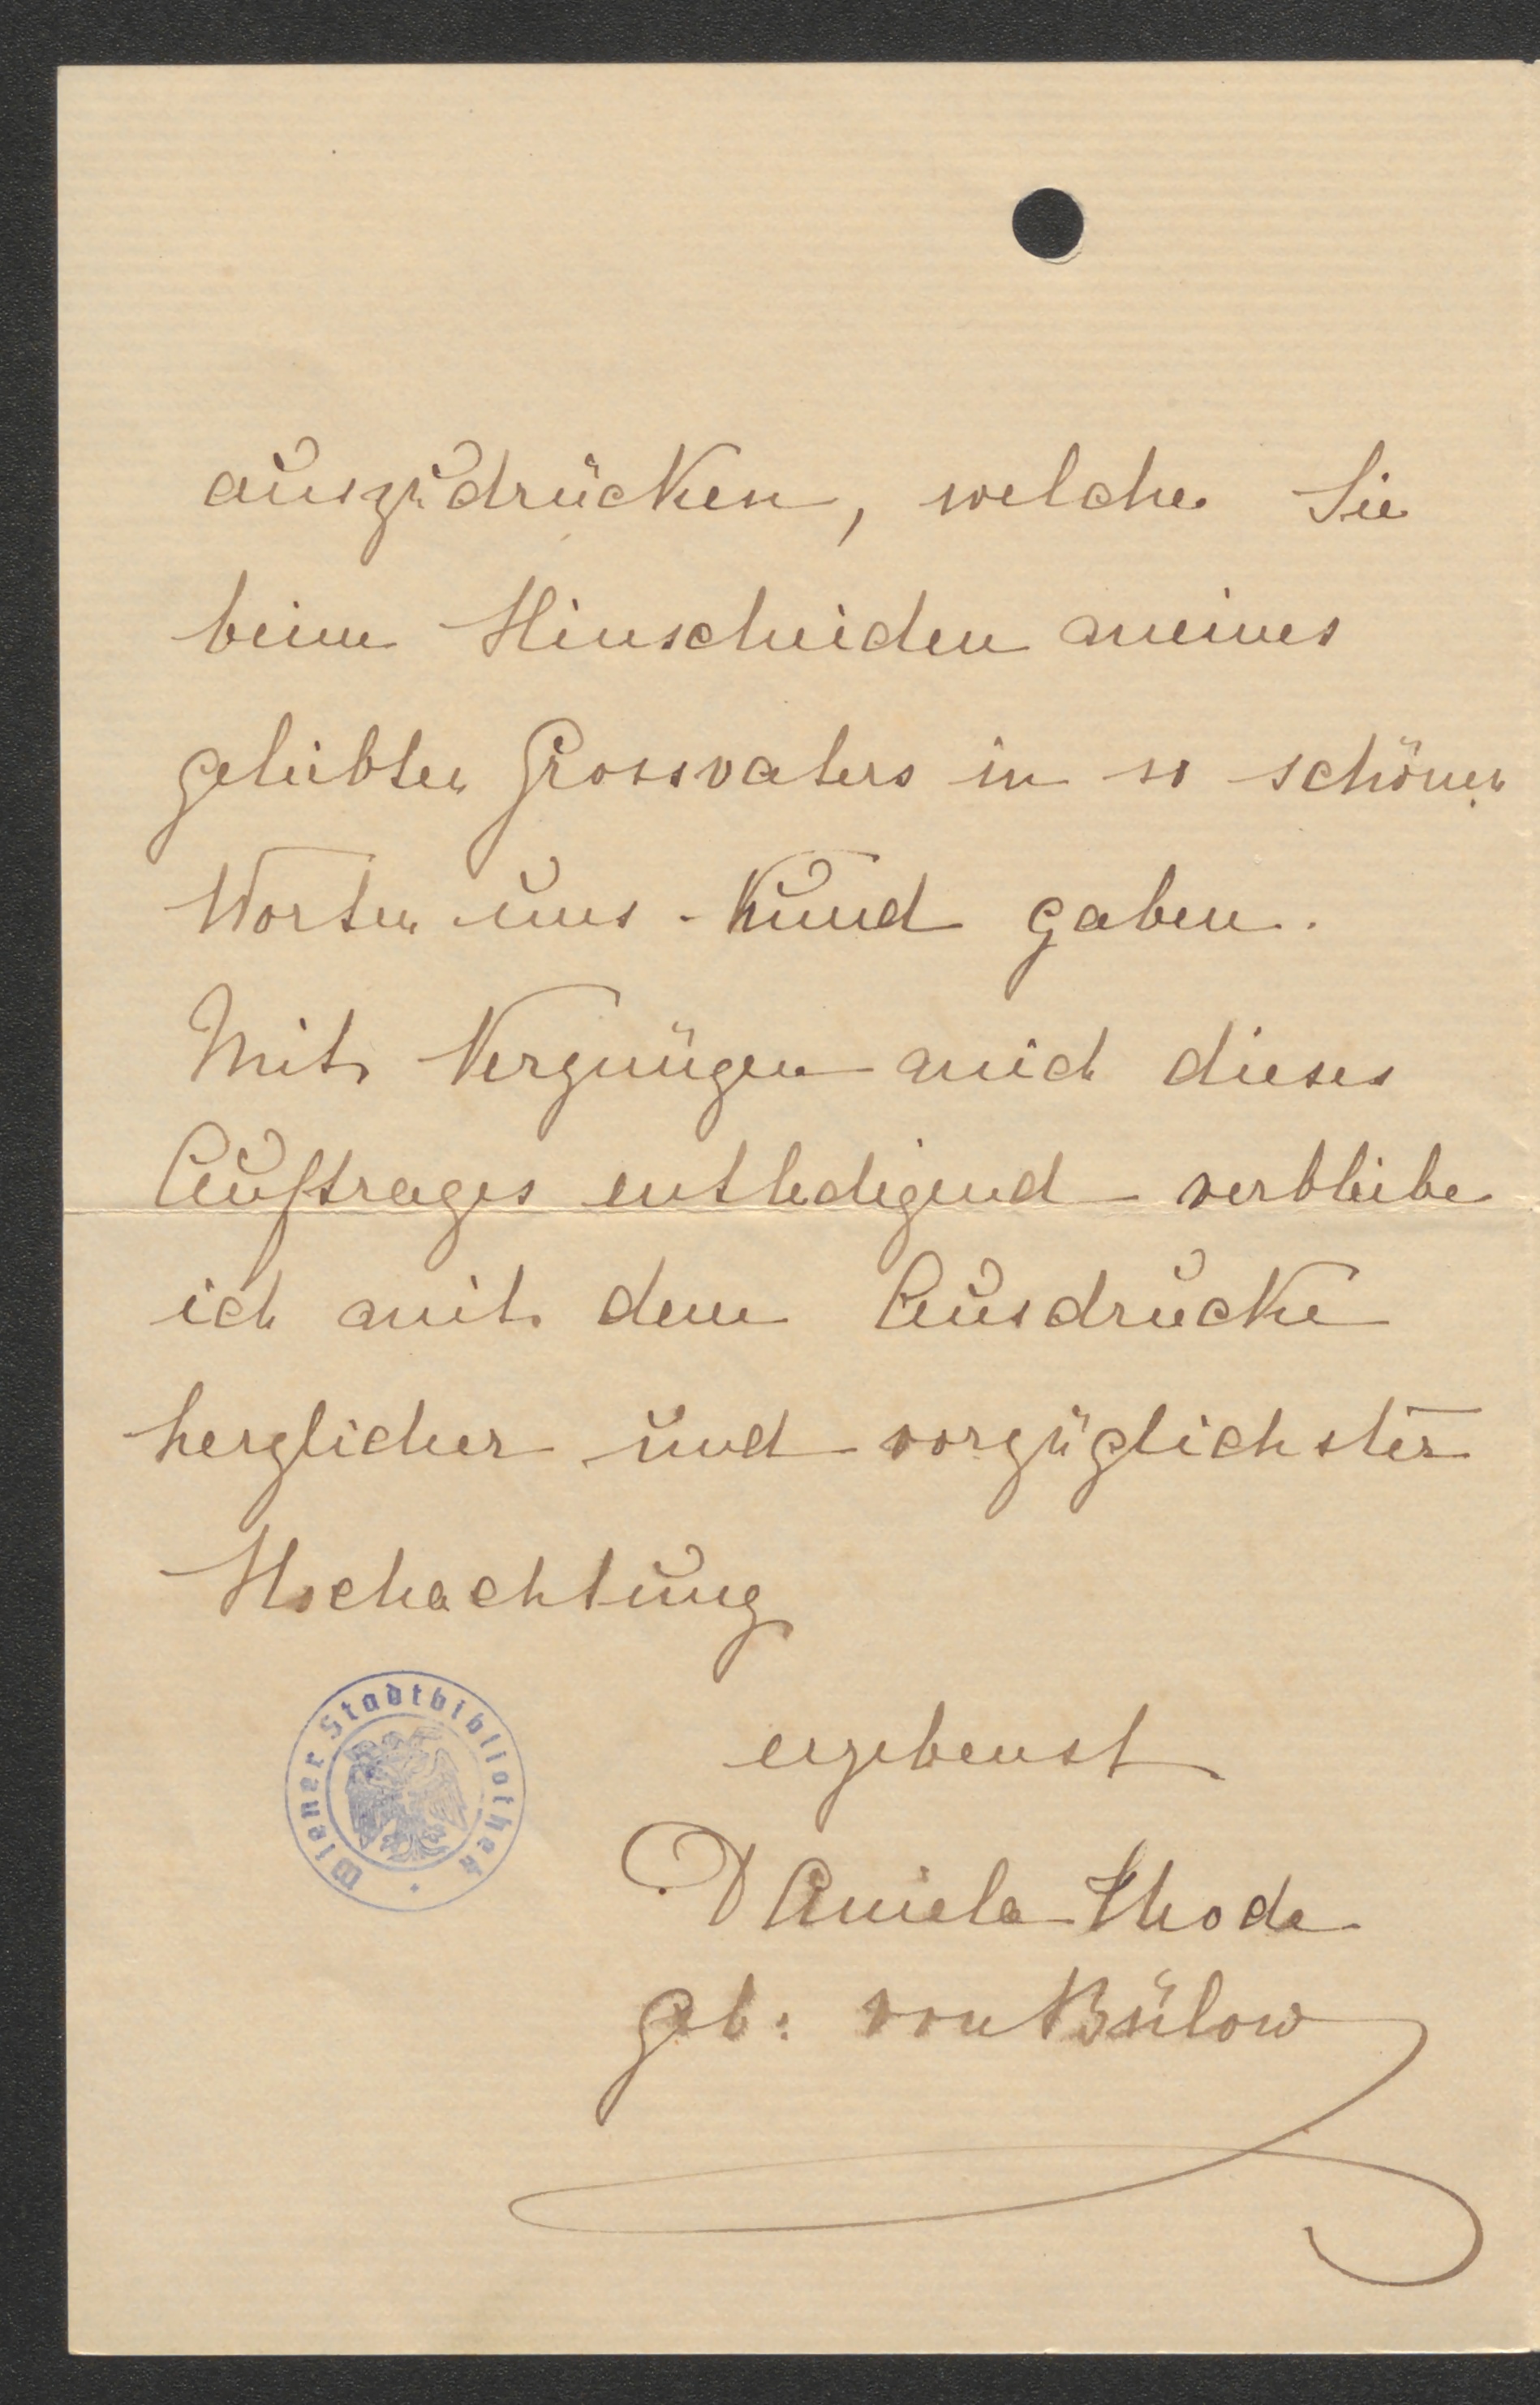 auszudrücken, welche Sie
beim Hinscheiden meines
geliebten Grossvaters in so schönen
Worten uns kund gaben.
Mit Vergnügen mich dieses
Auftrages entledigend verbleibe
ich mit dem Ausdrucke
herzlicher und vorzüglichster
Hochachtung
Wiener Stadtbibliothek
ergebenst
Daniela Thode
geb: von Bülow